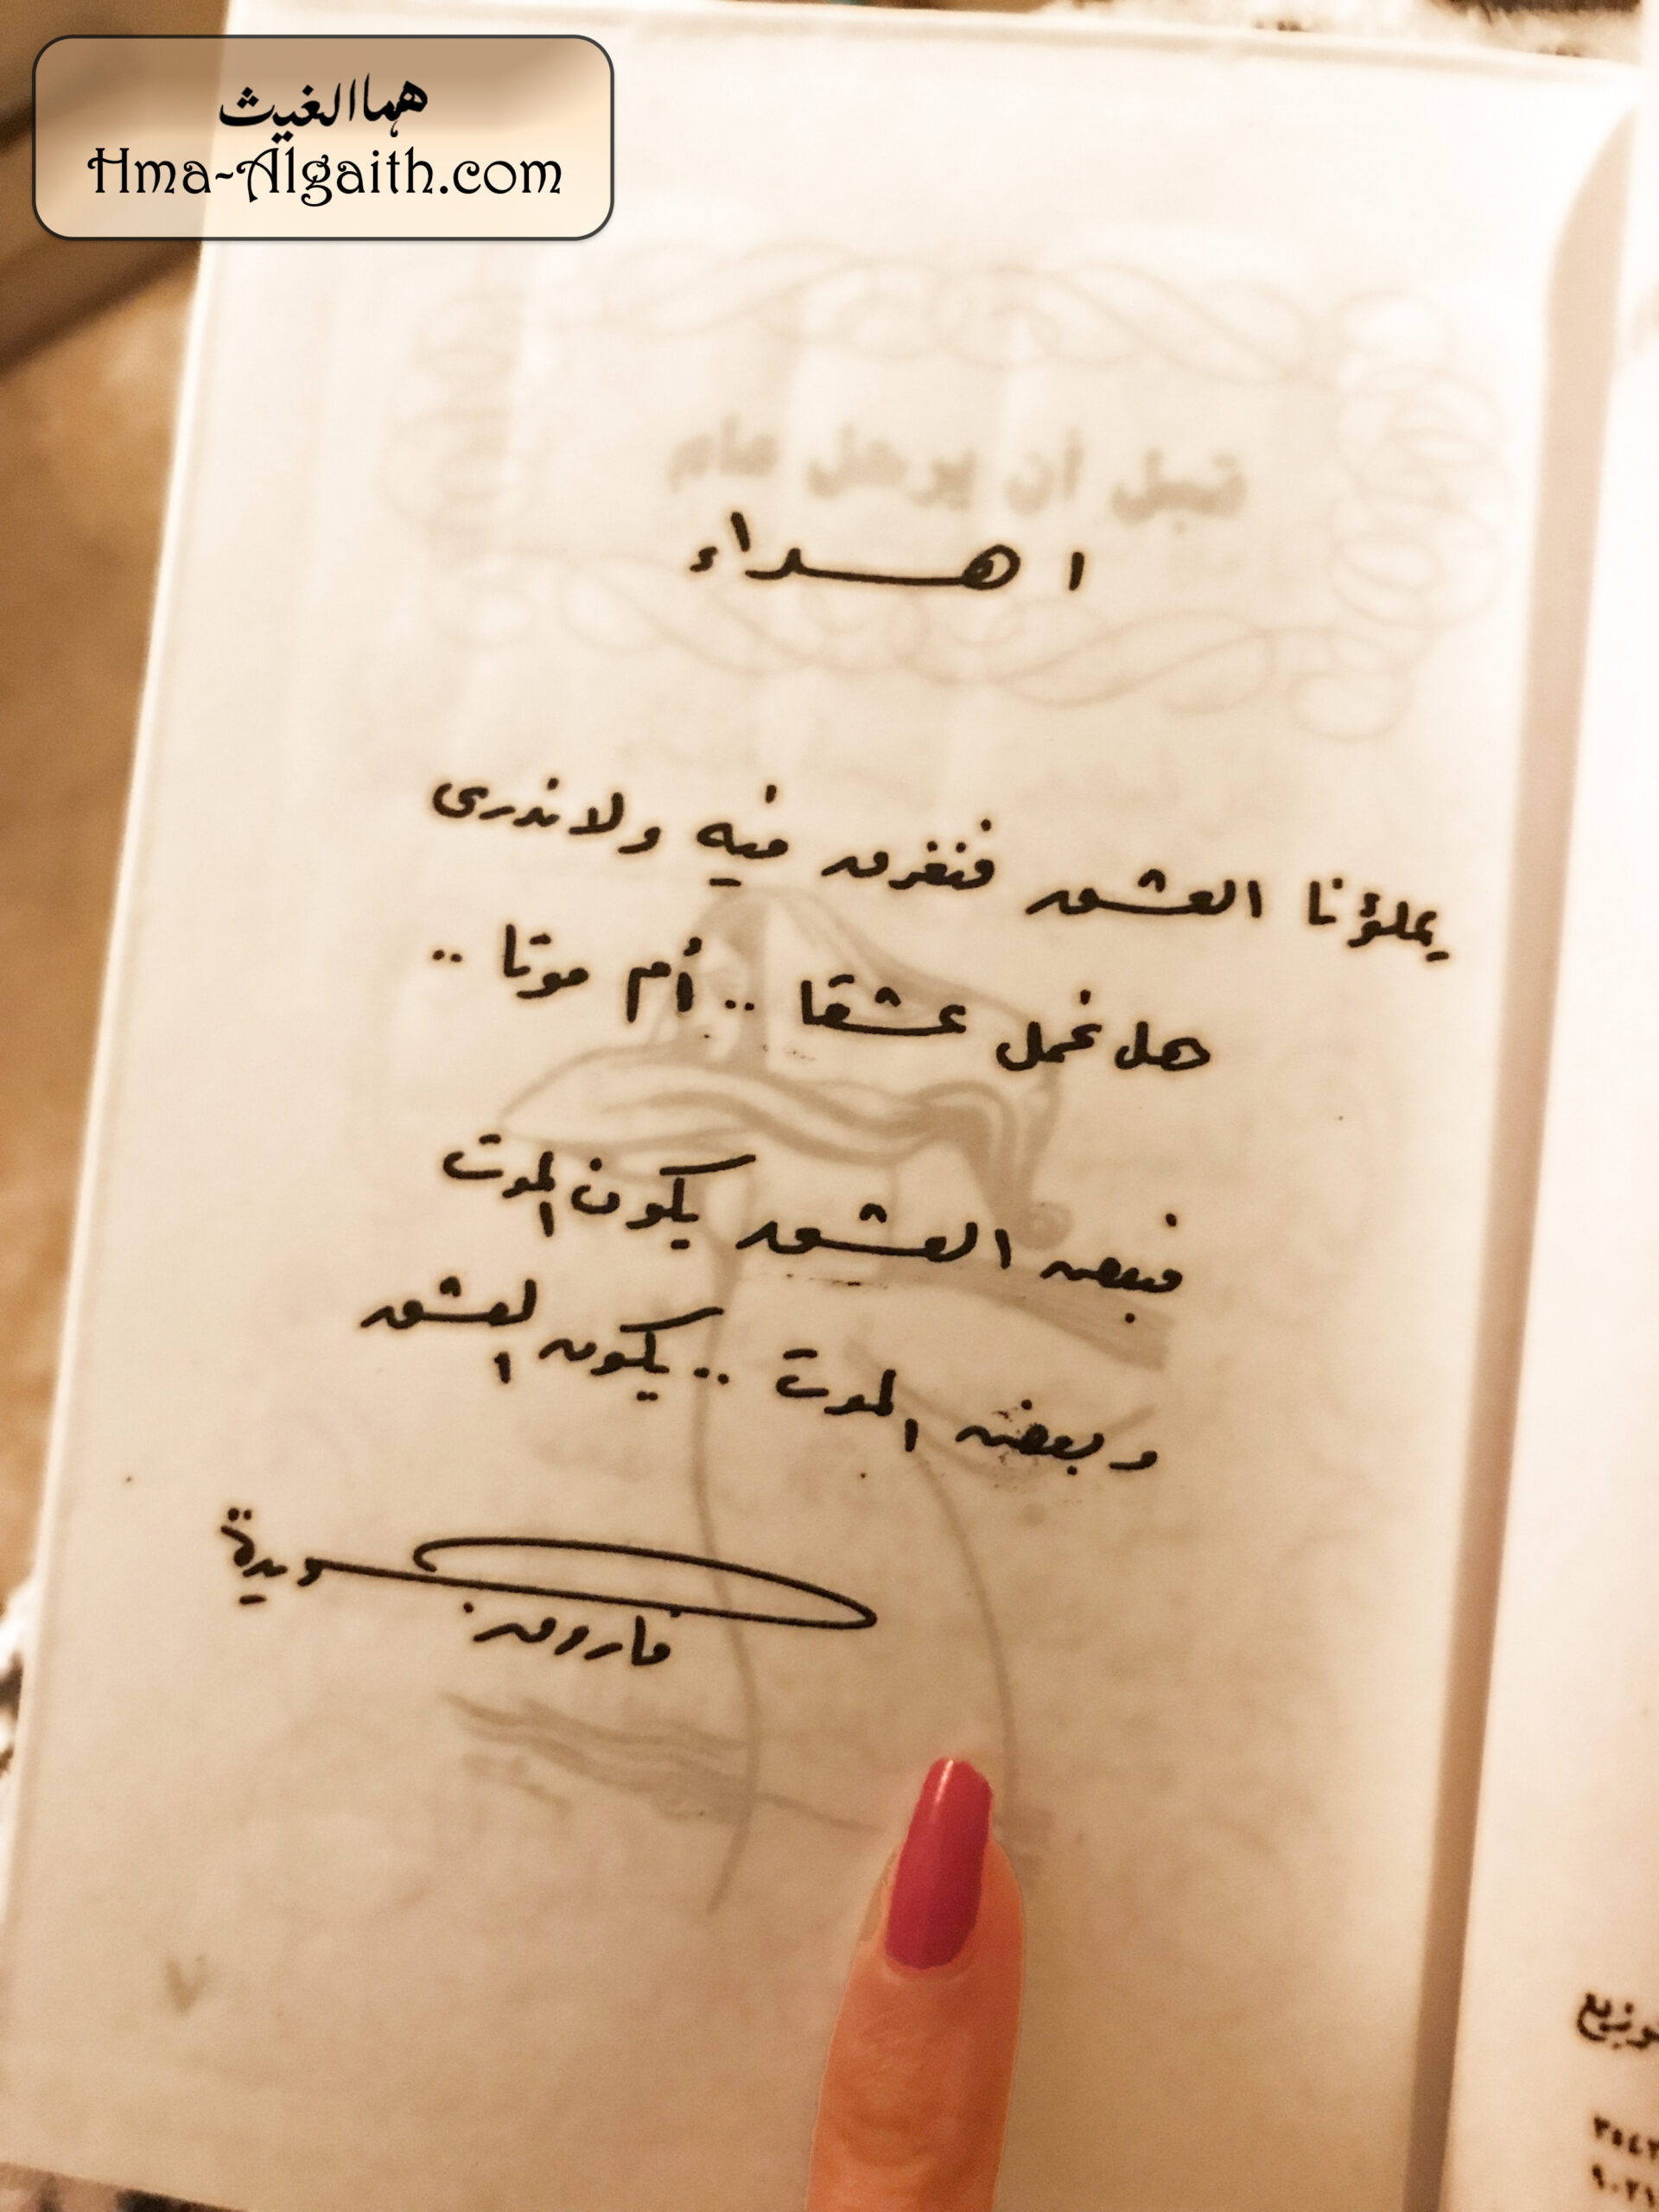 هما الغيث
Hma-Algaith.com
قبل أن يرحل عام
اهداء
يملؤنا العشق فنغرق فيه ولا ندرى
هل نحمل عشقا .. أم موتا ..
فبعض العشق يكون الموت
وبعض الموت .. يكون العشق
فاروق جويدة
٧